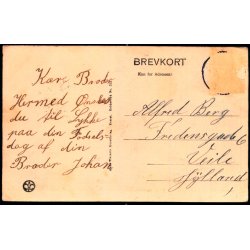 BREVKORT
Kun for Adressen
Kære Broder
Hermed Ønskes
du til Lykke
paa din Fødsels-
dag af din
Broder Johan
Alfred Berg
Fredensgade 6
Vejle
Jylland